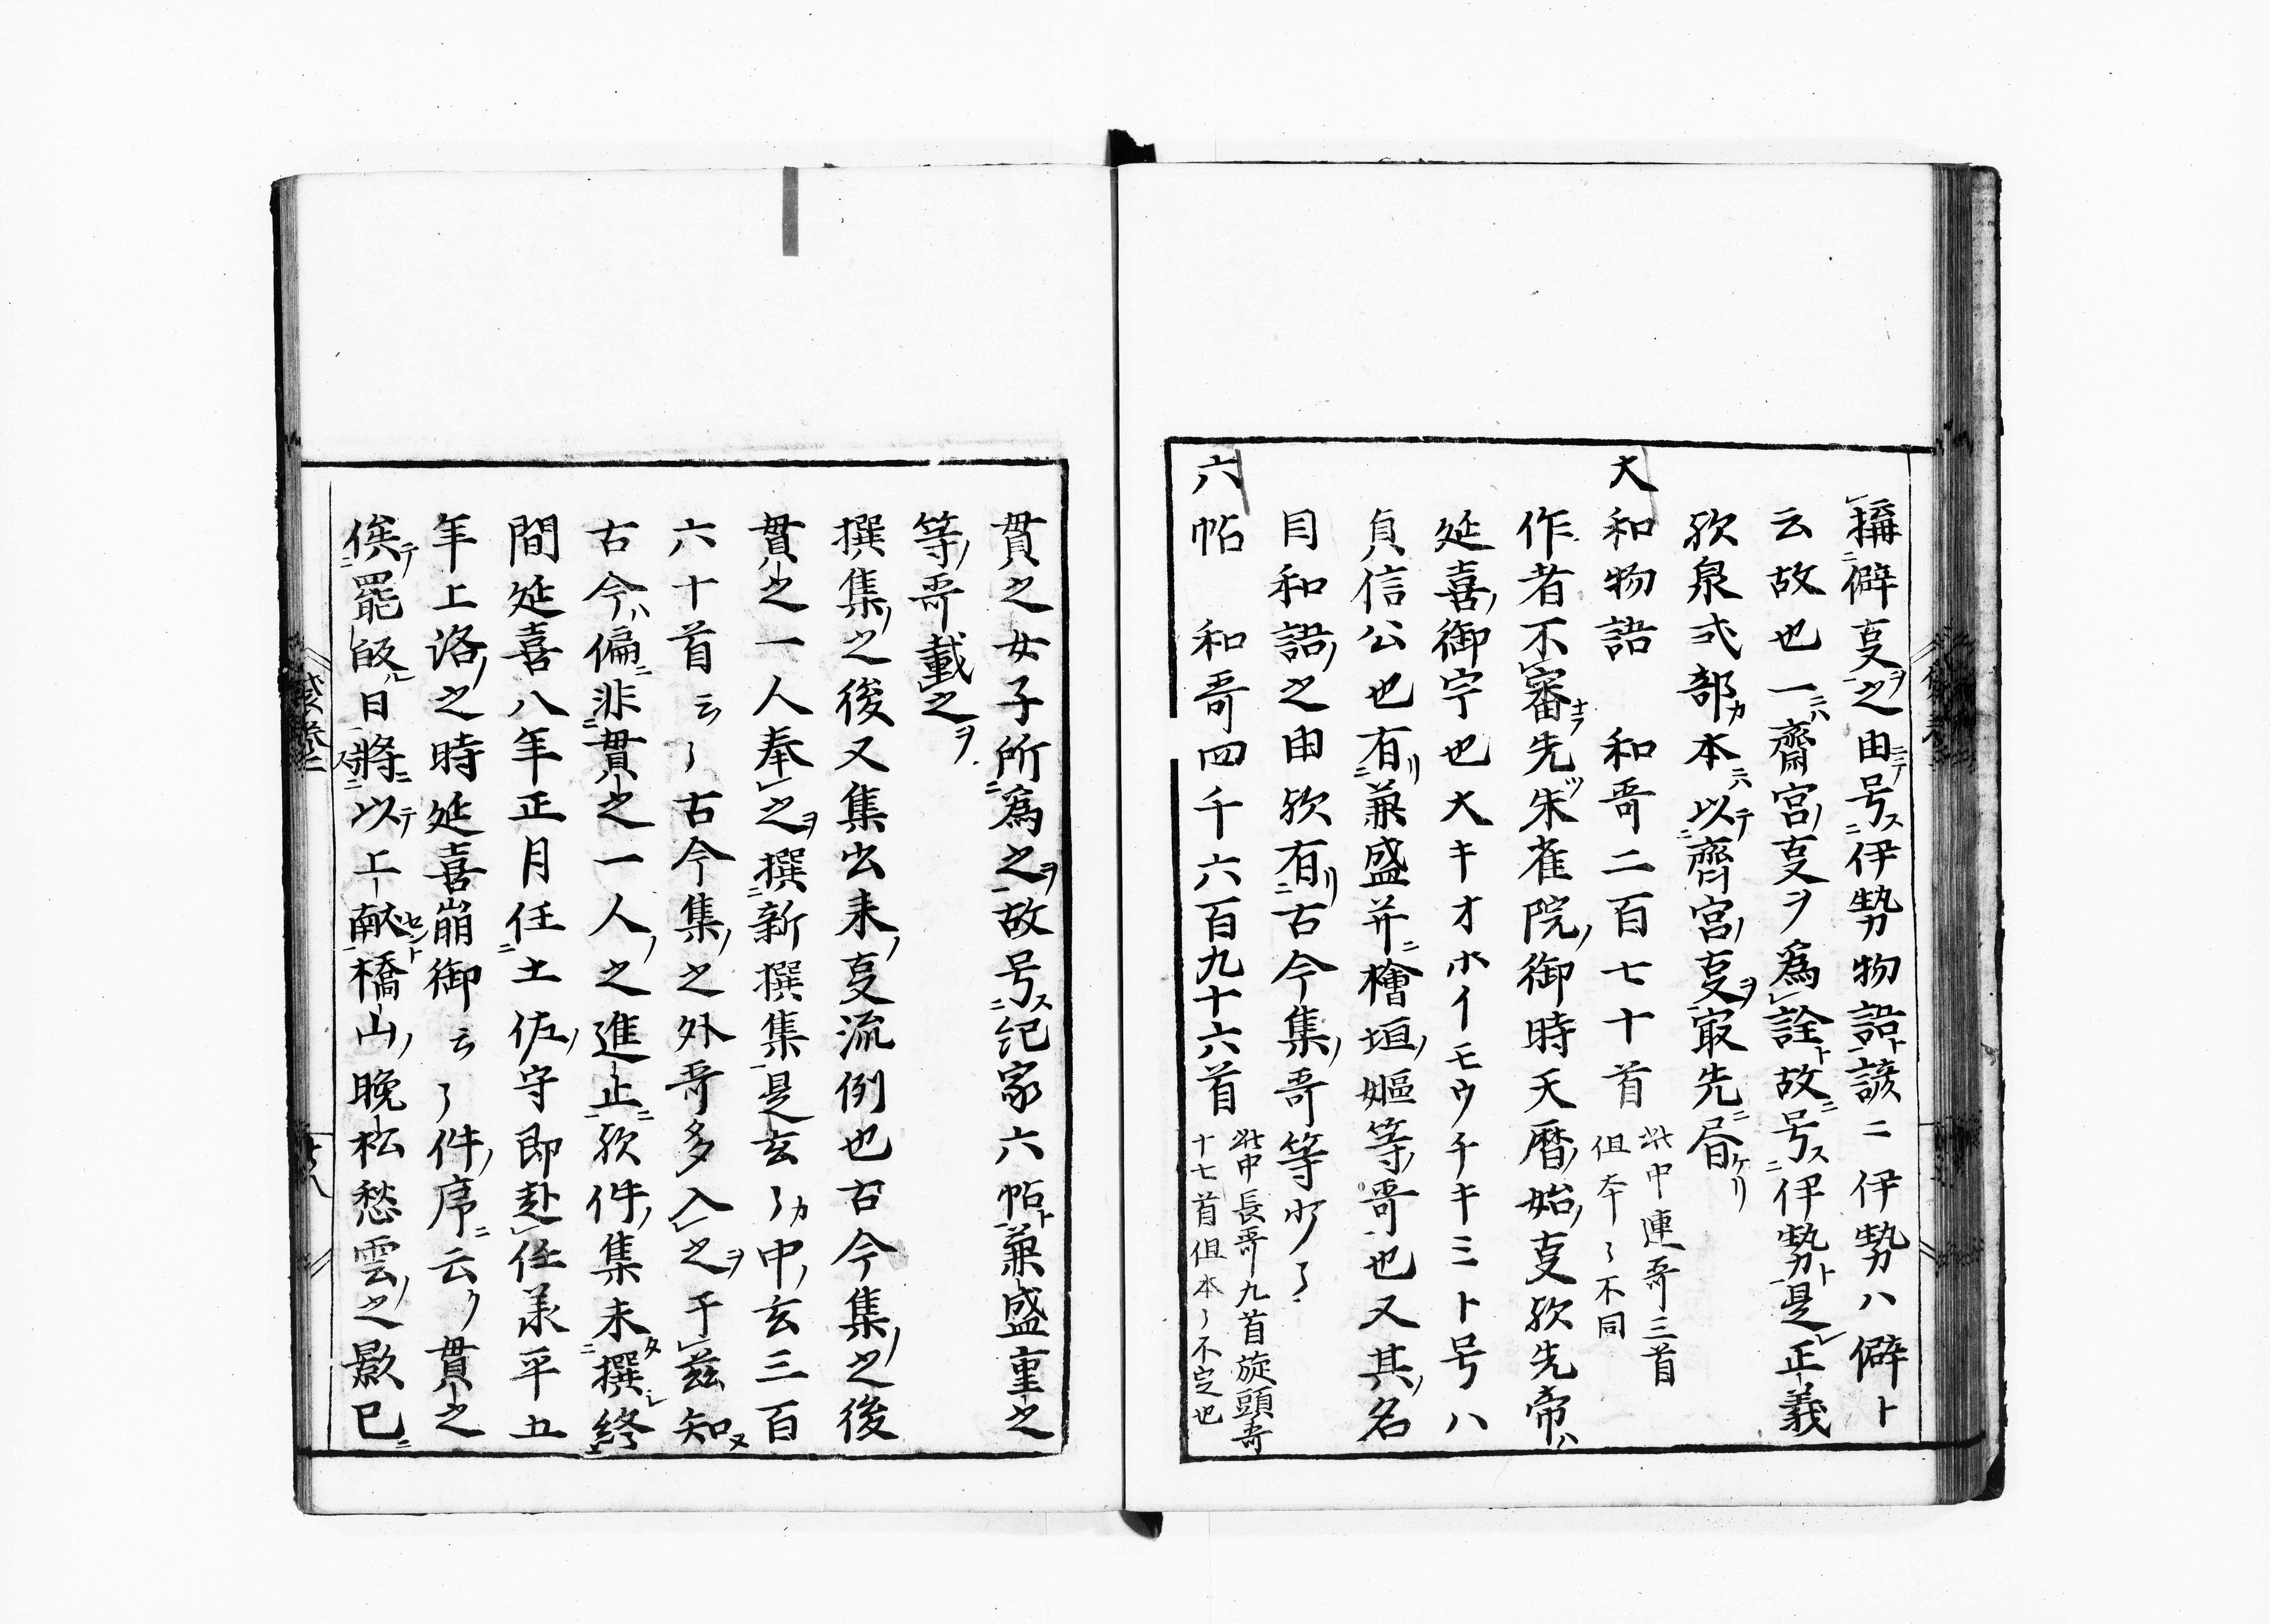 稱僻㕝之由号伊勢物語諺ニ伊勢ハ僻ト
云故也一齋宮㕝ヲ為詮故号伊勢是正義
欤泉式部本以齊宮㕝㝡先㞐
大和物語 和哥二百七十首 此中連哥三首
但本々不同
作者不審先朱雀院御時天暦始㕝欤先帝ハ
延喜御宇也大キオホイモウチキミト号ハ
貞信公也有兼盛并檜垣嫗等哥也又其名
目和語之由欤有古今集哥等少々
六帖 和哥四千六百九十六首 此中長哥九首旋頭哥
十七首但本々不定也
貫之女子所為之故号紀家六帖兼盛重之
等哥載之
撰集之後又集出来㕝流例也古今集之後
貫之一人奉之撰新撰集是玄々中玄三百
六十首云々古今集之外哥多入之于茲知
古今偏非貫之一人之進止欤件集未撰終
間延喜八年正月任土佐守即赴任承平五
年上洛之時延喜崩御云々件序云貫之
俟罷皈日將以上献橋山晩松愁雲之影已